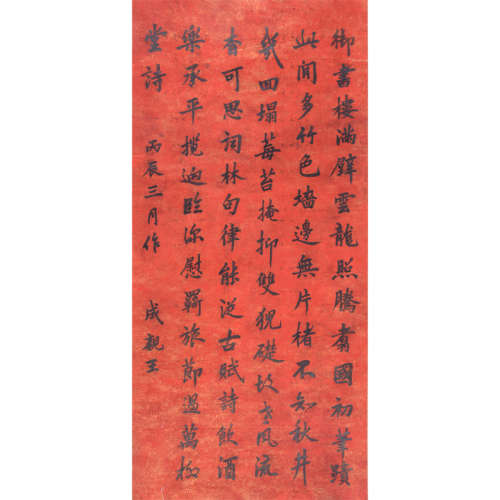 御書樓滿壁雲龍照騰翥國初筆蹟
此間多竹色墻邊無片楮不知秋井
幾回塌莓苔掩抑雙猊礎故老風流
杳可思詞林句律能從古賦詩飲酒
樂承平攬迹臨深慰羈旅節過萬柳
堂詩
丙辰三月作
成親王